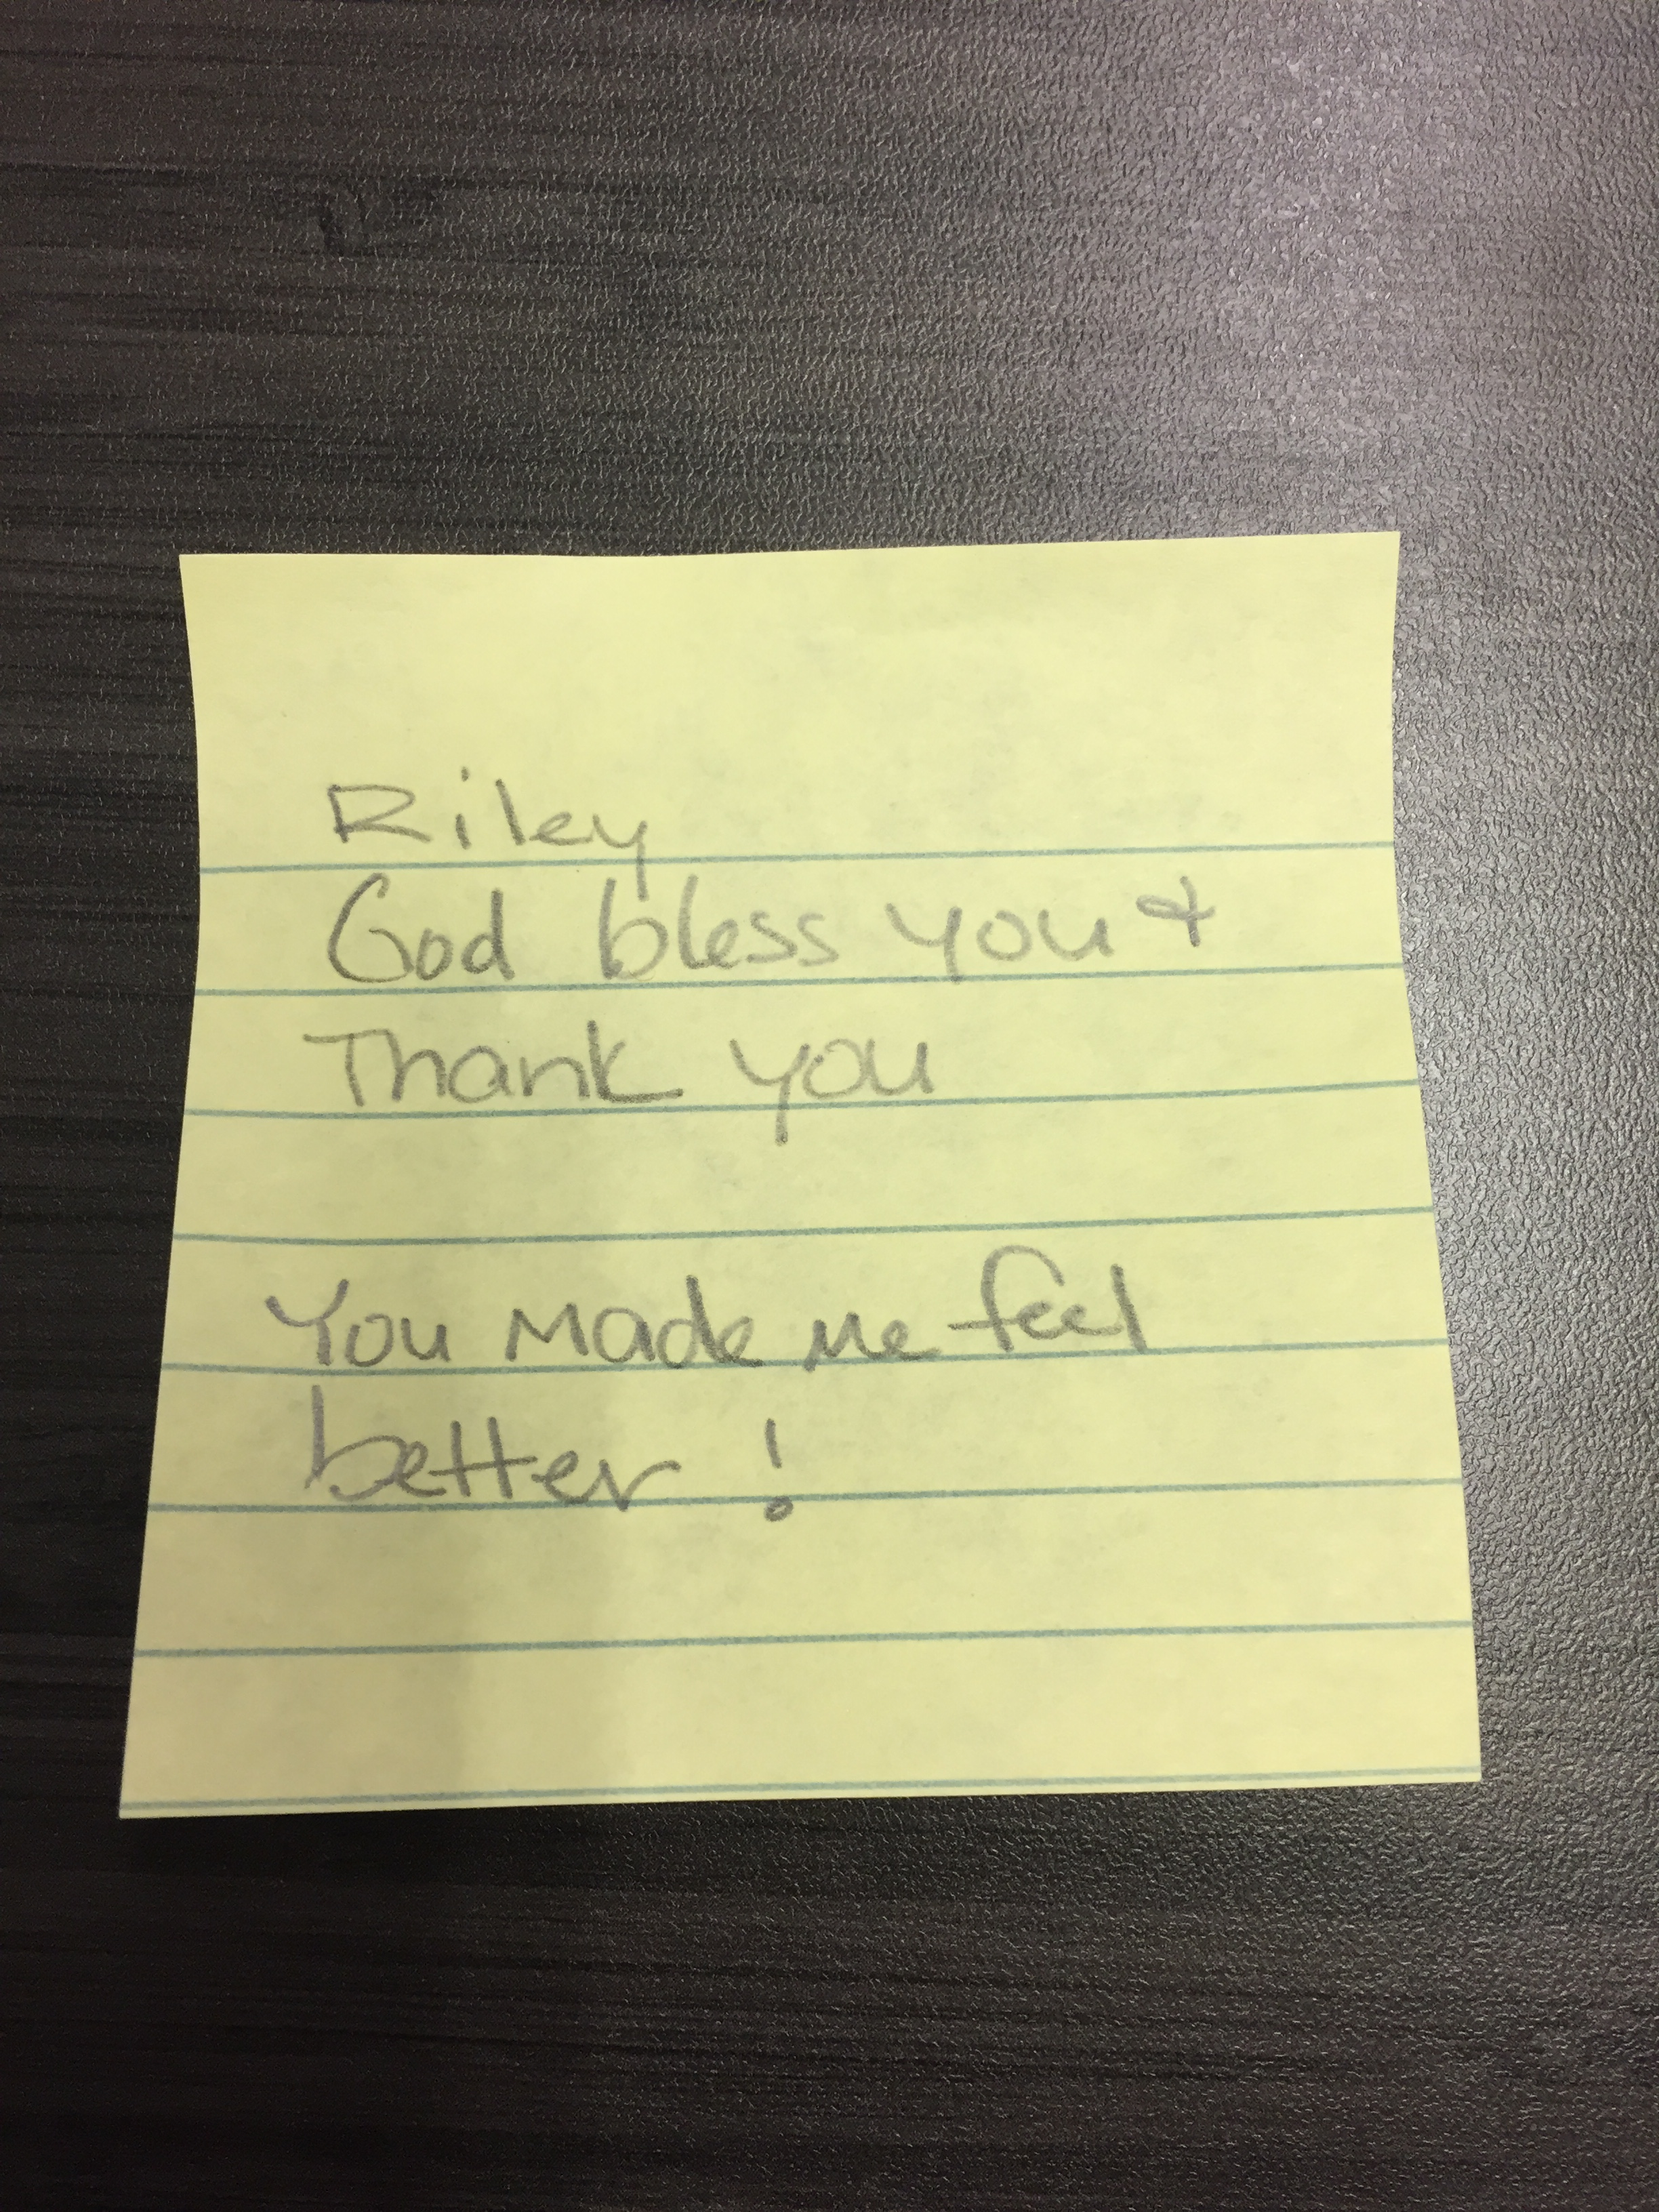 Riley
God bless you &
Thank you
You made me feel
better !